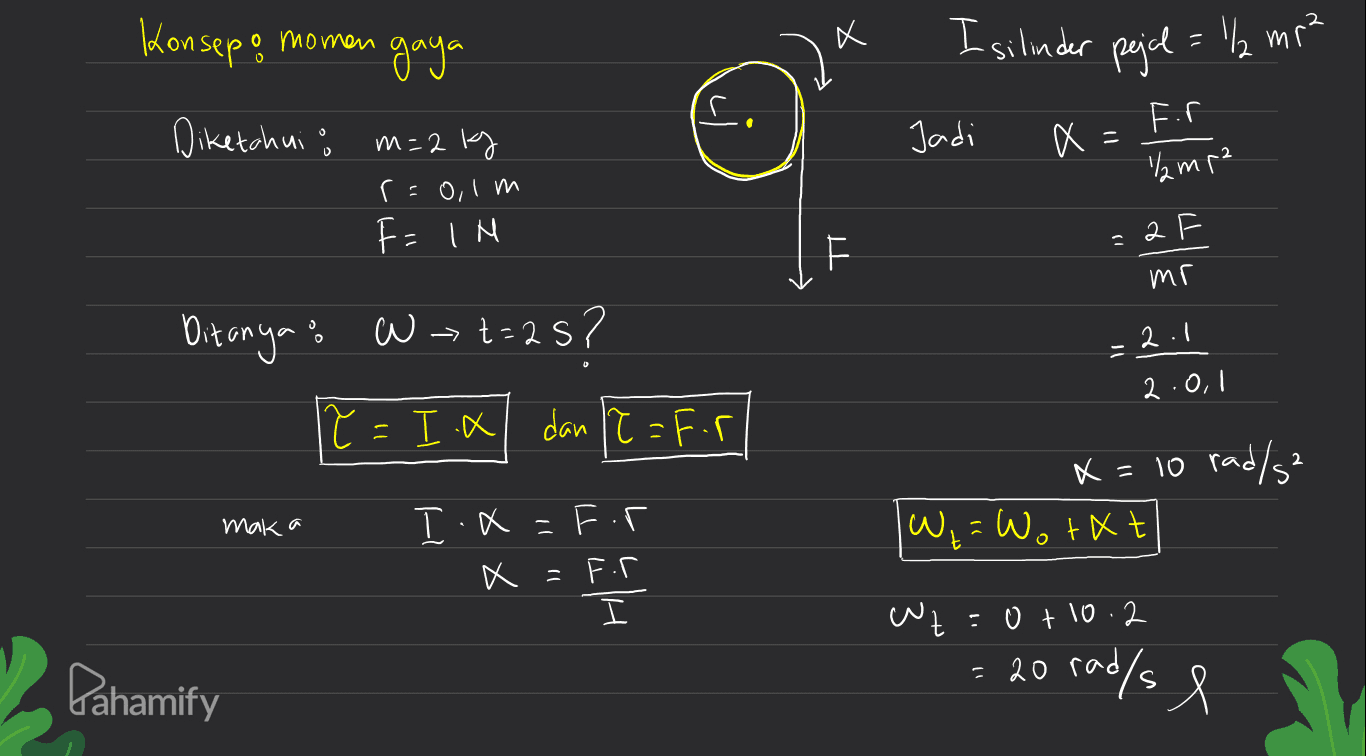 Konsep : momen gaya
Diketahui : m = 2 kg
r = 0,1 m
F = 1 N
Ditanya : ω → t = 2 s ?
τ = I . α dan τ = F . r
maka I . α = F . r
α = F . r / I
r
α
F
I silinder pejal = 1/2 mr²
Jadi α = F . r / 1/2 mr²
= 2 F / mr
= 2 . 1 / 2 . 0,1
α = 10 rad/s²
ωt = ω₀ + α t
ωt = 0 + 10 . 2
= 20 rad/s
Pahamify